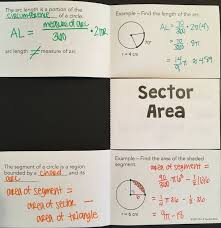 The arc length is a portion of the
circumference of a circle.
AL = measure of arc / 360 · 2πr
arc length ≠ measure of arc.
Example – Find the length of the arc.
AL = 70/360 · 2π(4)
= 70/360 · 8π
= 14/9 π ≈ 4.89
70°
r = 4 cm
Sector
Area
The segment of a circle is a region
bounded by a chord and its
arc
area of segment =
area of sector –
area of triangle
Example – Find the area of the shaded
segment.
area of segment =
90/360 π6² – ½(6)6
¼ π36 – ½·36
9π – 18
r = 6 cm